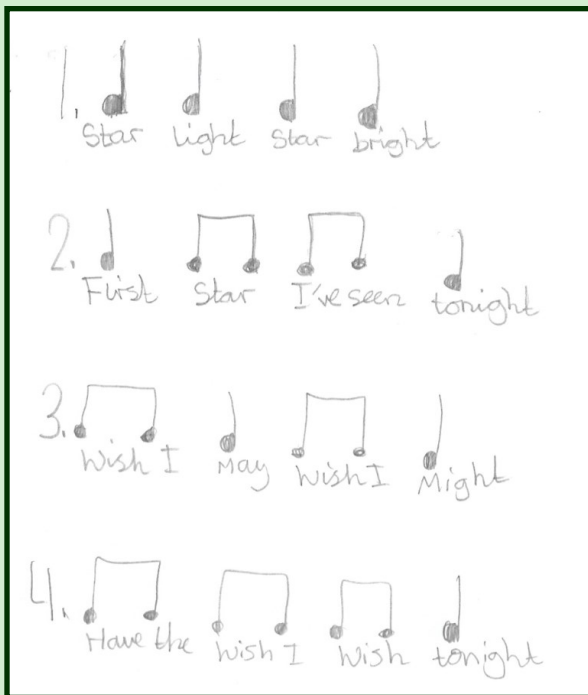 1. Star light Star bright
2. First Star I've seen tonight
3. Wish I May Wish I Might
4. Have the Wish I Wish tonight